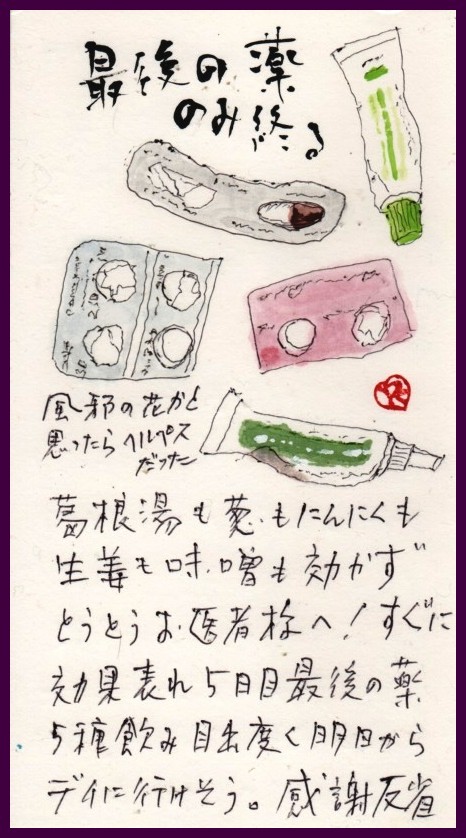 最後の薬
のみ終る
風邪の花かと
思ったらヘルペス
だった
葛根湯も葱もにんにくも
生姜も味噌も効かず
とうとうお医者様へ!すぐに
効果表れ5日目最後の薬
5種飲み目出度く明日から
デイに行けそう。感謝反省